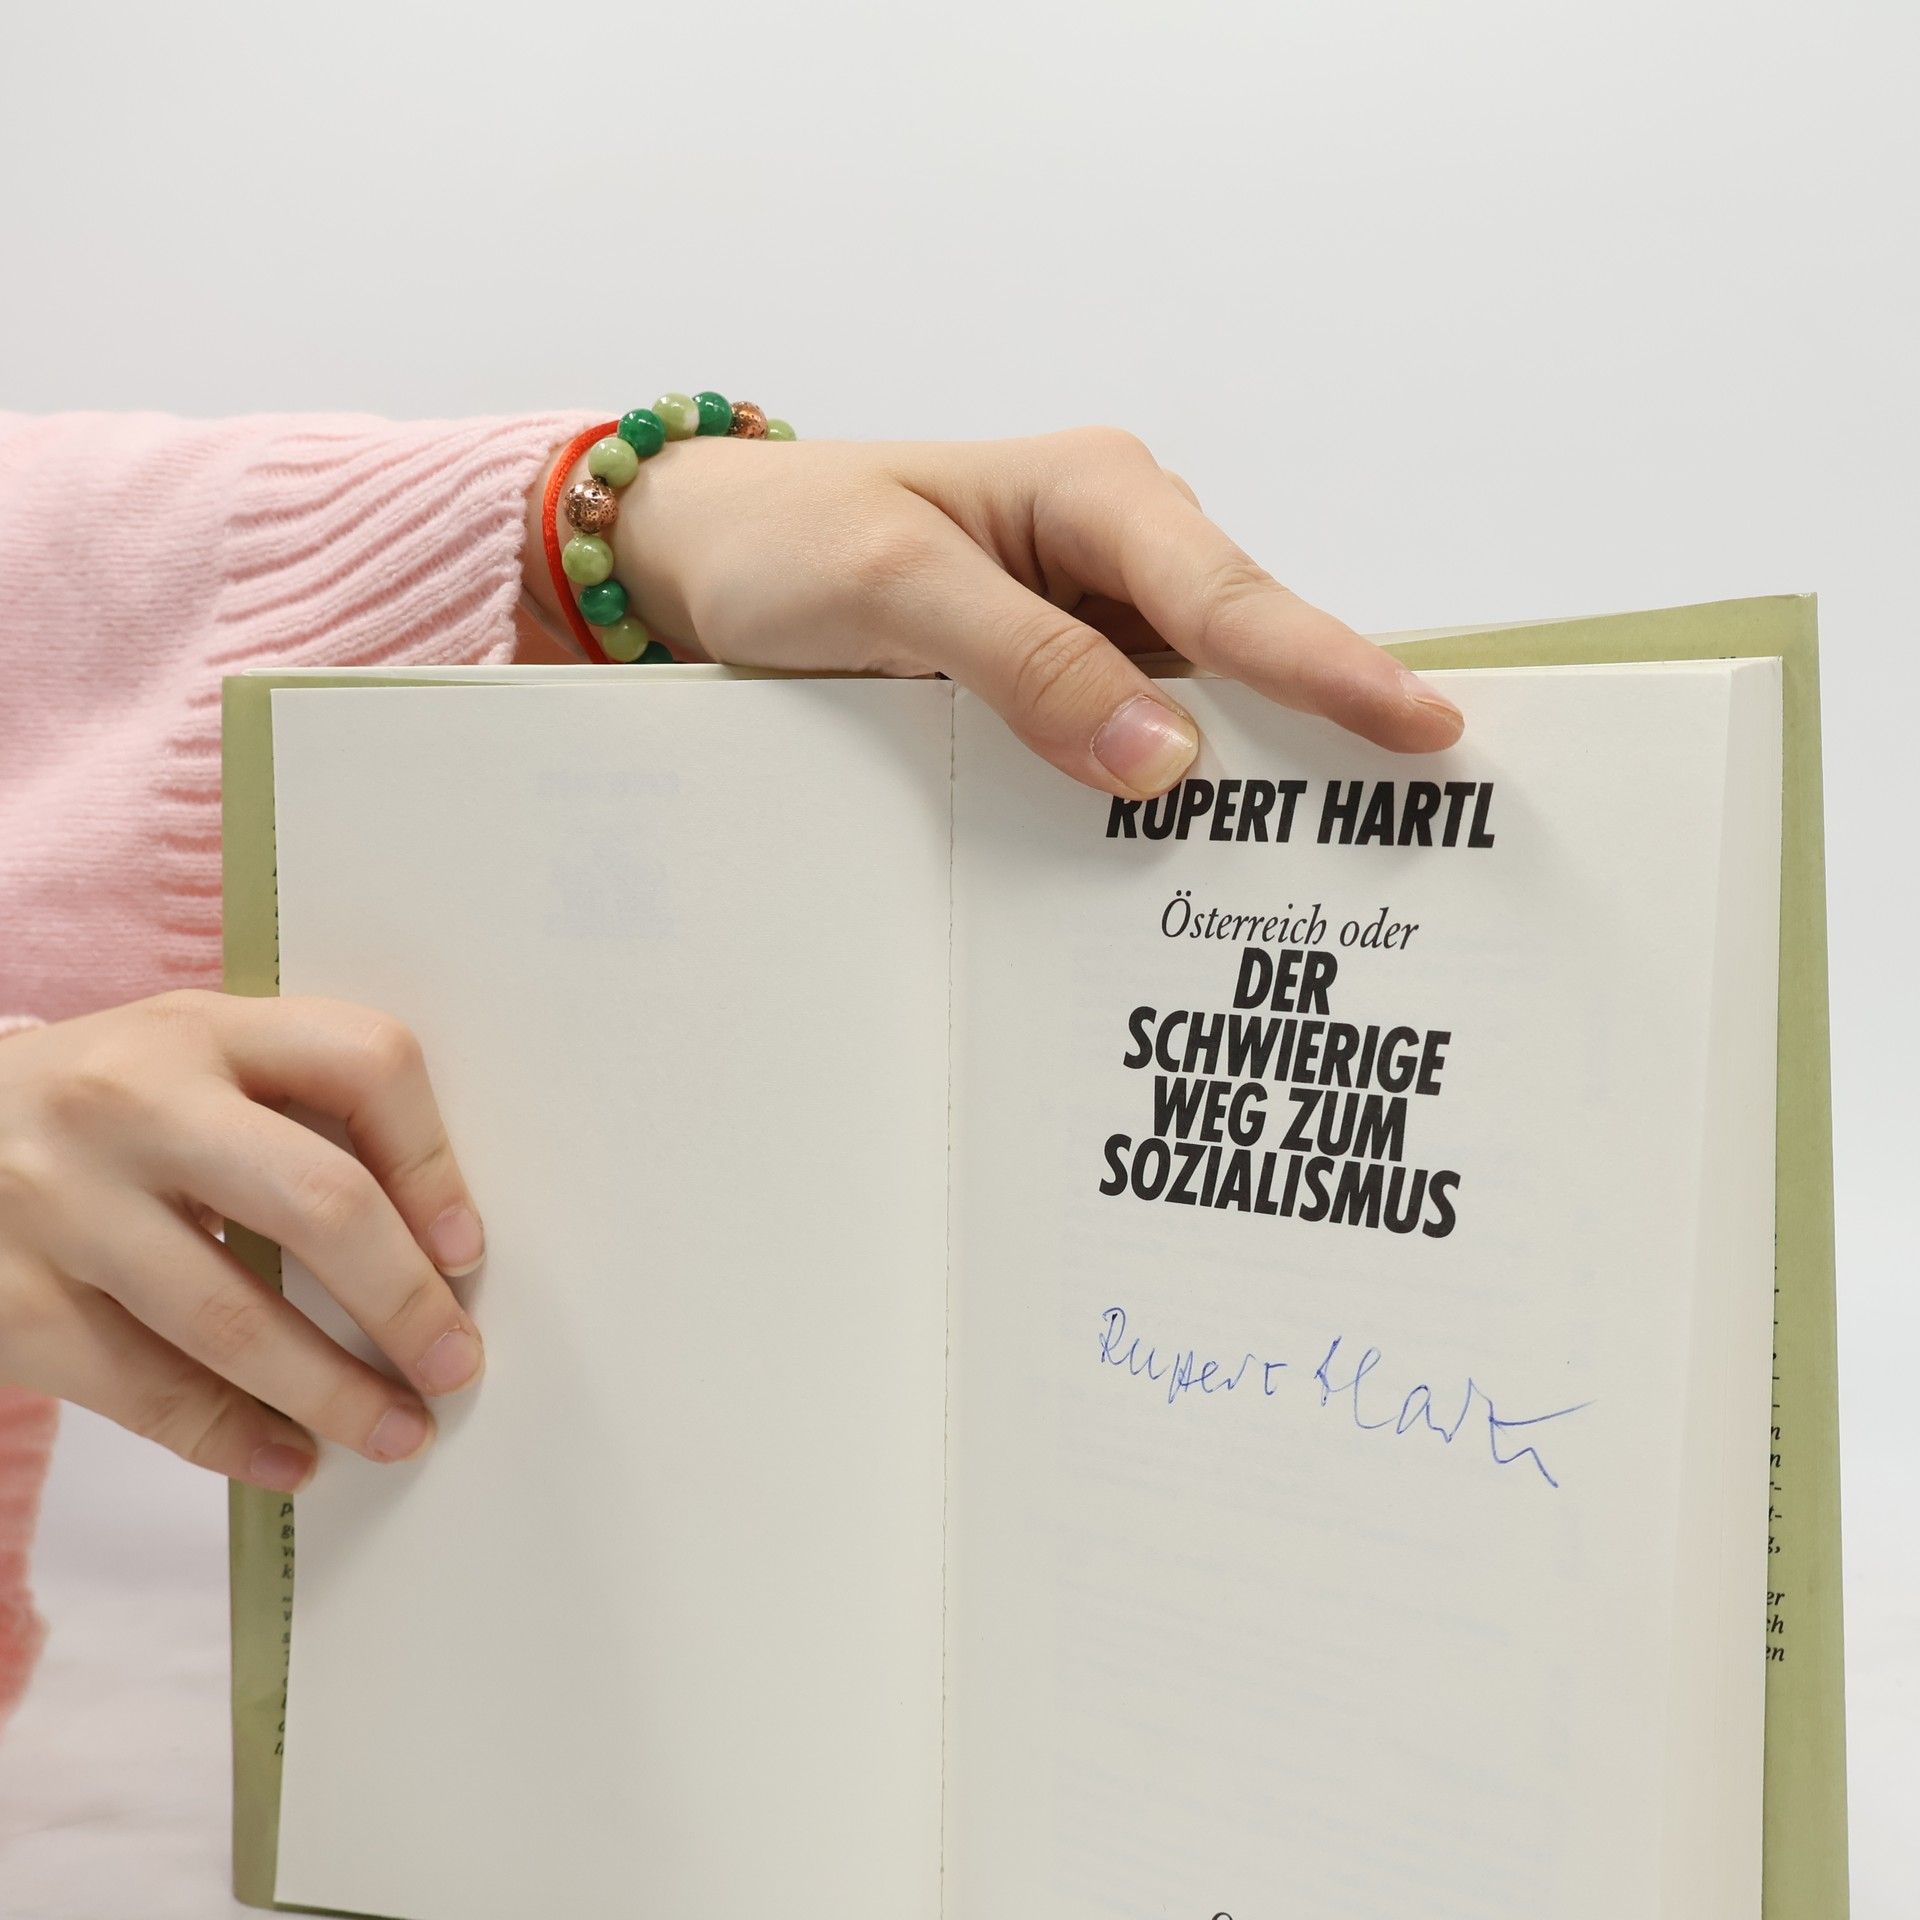 RUPERT HARTL
Österreich oder
DER
SCHWIERIGE
WEG ZUM
SOZIALISMUS
Rupert Hartl